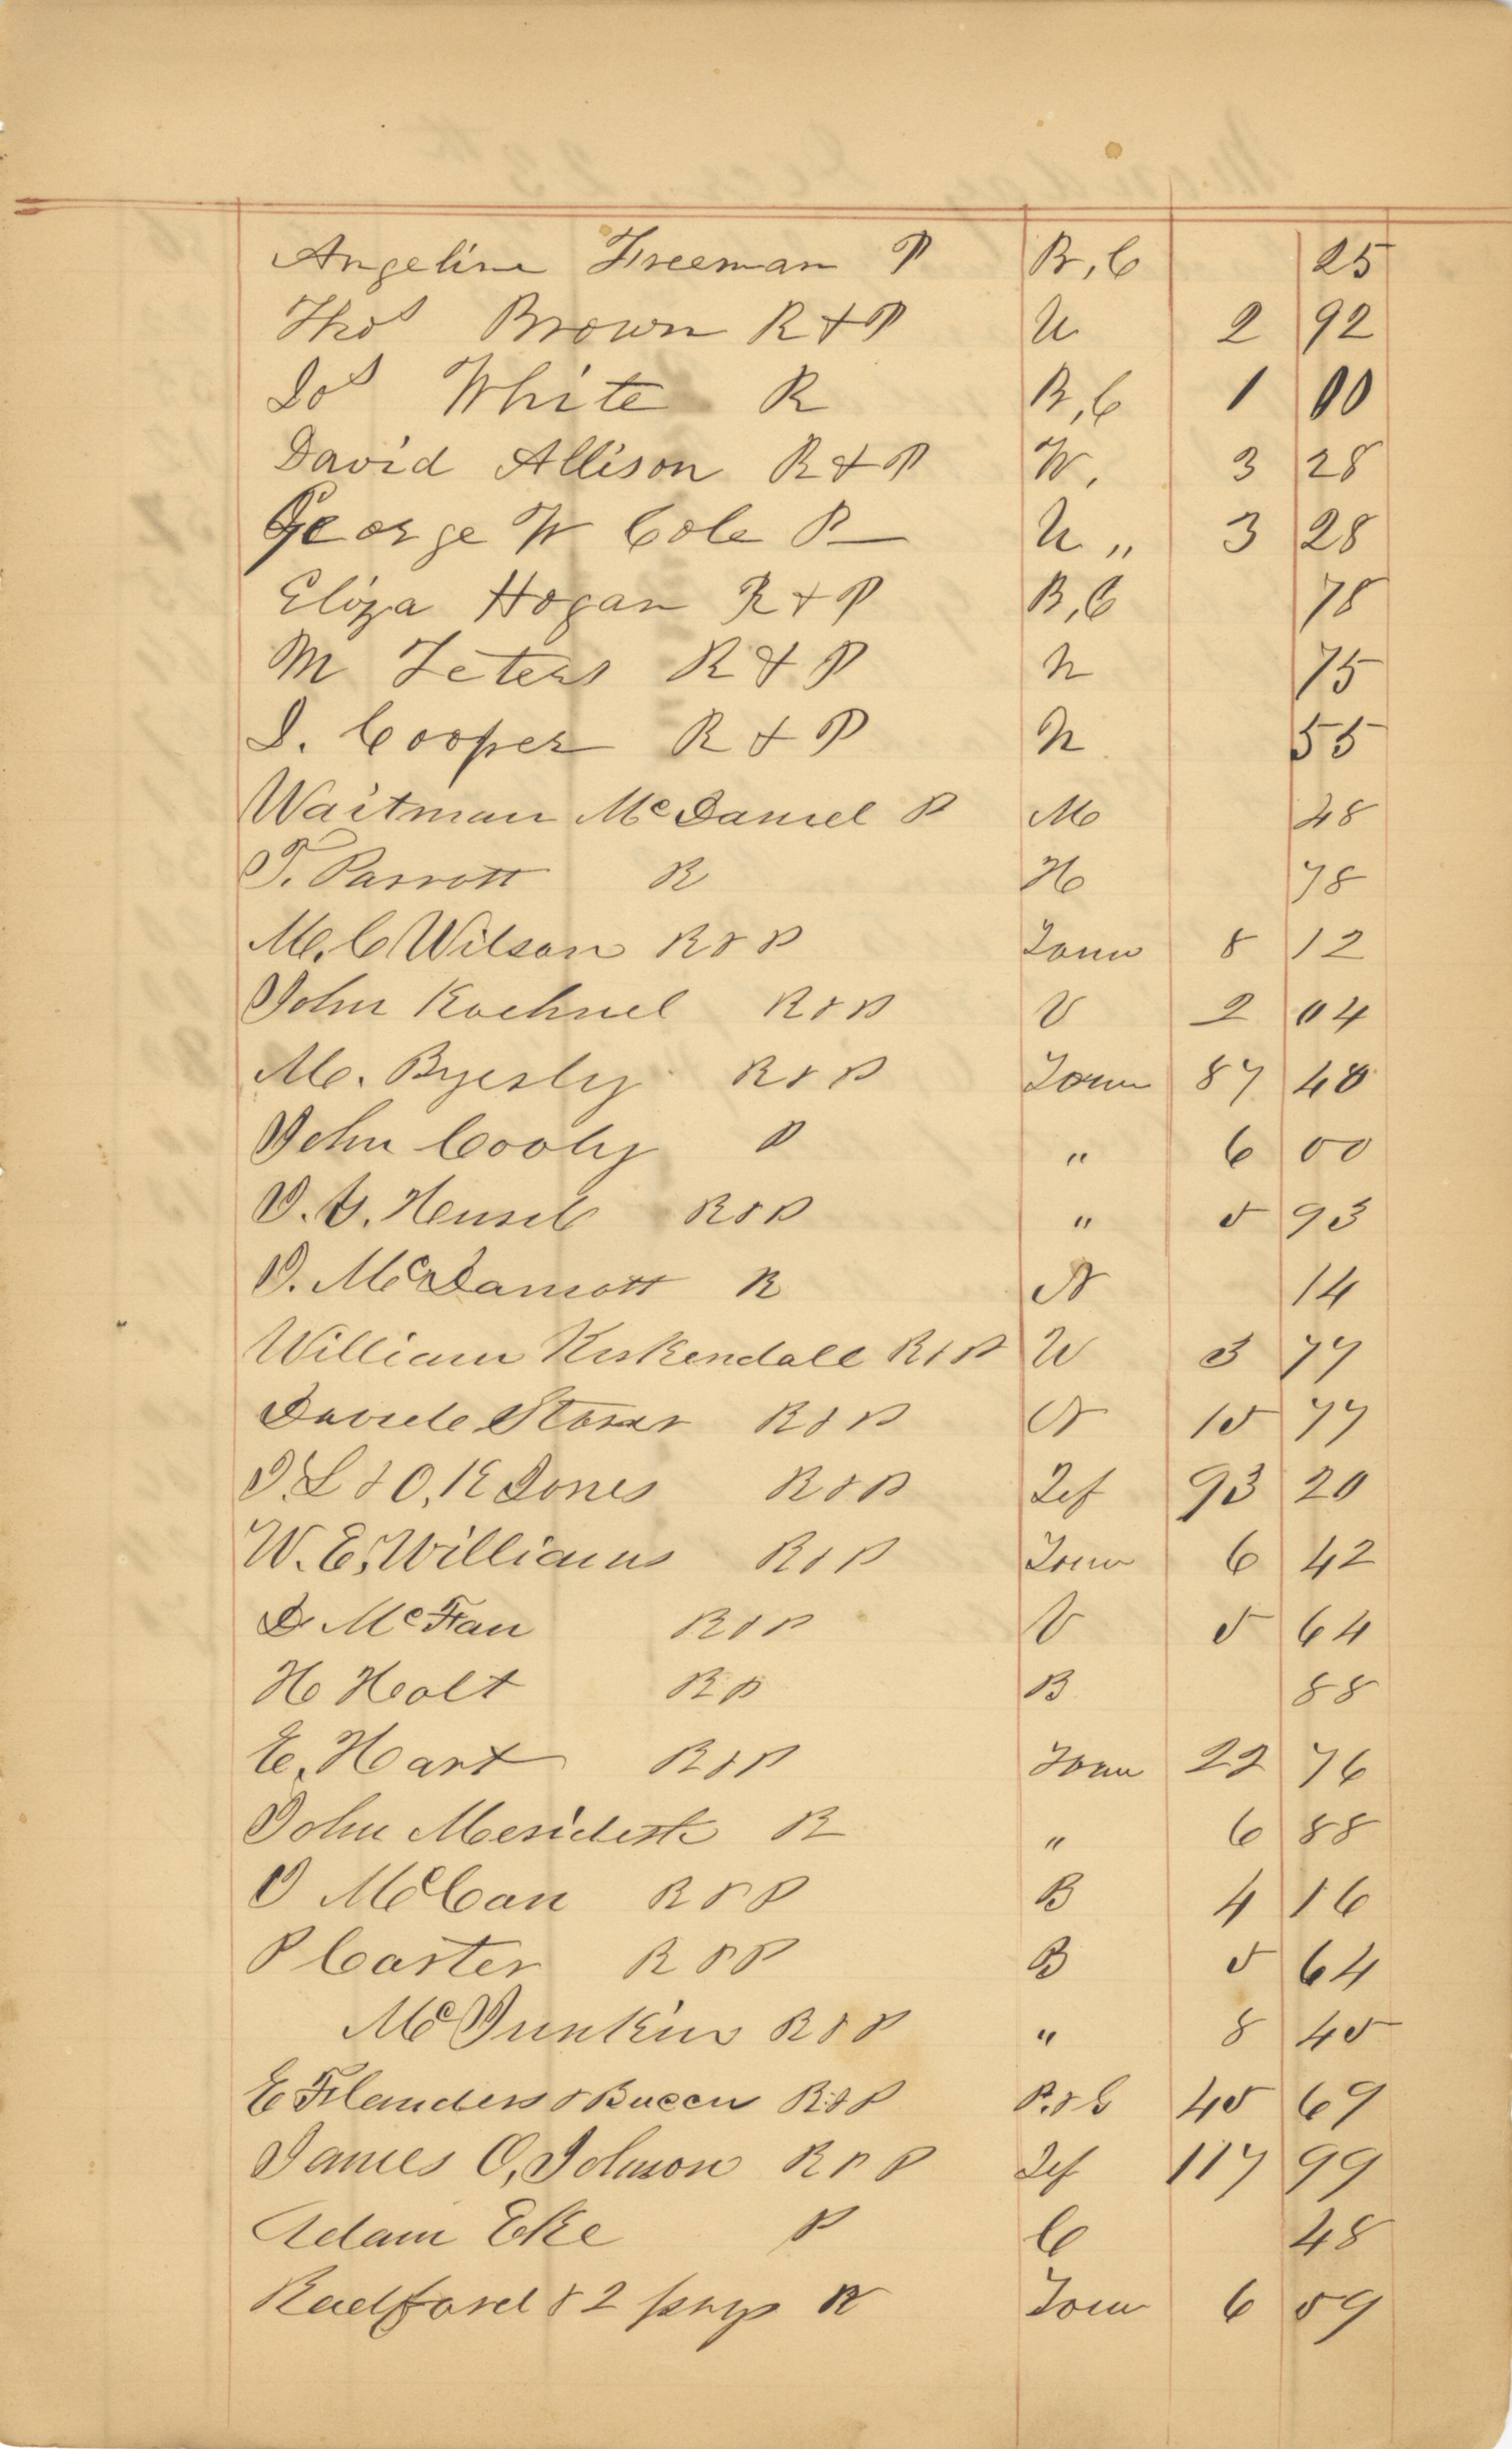 Angeline Freeman P B,C 25
Thos Brown R & P U 2 92
Jos White R B,C 1 00
David Allison R & P W, 3 28
George W Cole P U " 3 28
Eliza Hogan R & P B,C 78
M Teters R & P N 75
J. Cooper R & P N 55
Waitman McDaniel P M 48
T. Parrott R H 78
M. C Wilson R & P Town 8 12
John Kochnel R & P V 2 04
M. Byerly R & P Town 87 40
John Cooly P " 6 00
R & P " 5 93
J. McDamott R N 14
William Kirkendall R & P W 3 77
Storer R & P N 15 77
J. L & O, K Jones R & P Jef 93 20
W. E. Williams R & P Town 6 42
D McFan R & P V 5 64
H Holt R P B 88
E. Hart R & P Town 22 76
John Merideth R " 6 88
J McCan R & P B 4 16
P Carter R & P B 5 64
McJunkin R & P " 8 45
E Flanders & Bucen R & P P. & G 45 69
James O, Johnson R & P Jef 117 99
Adam Eke P C 48
Radford & 2 R Town 6 59